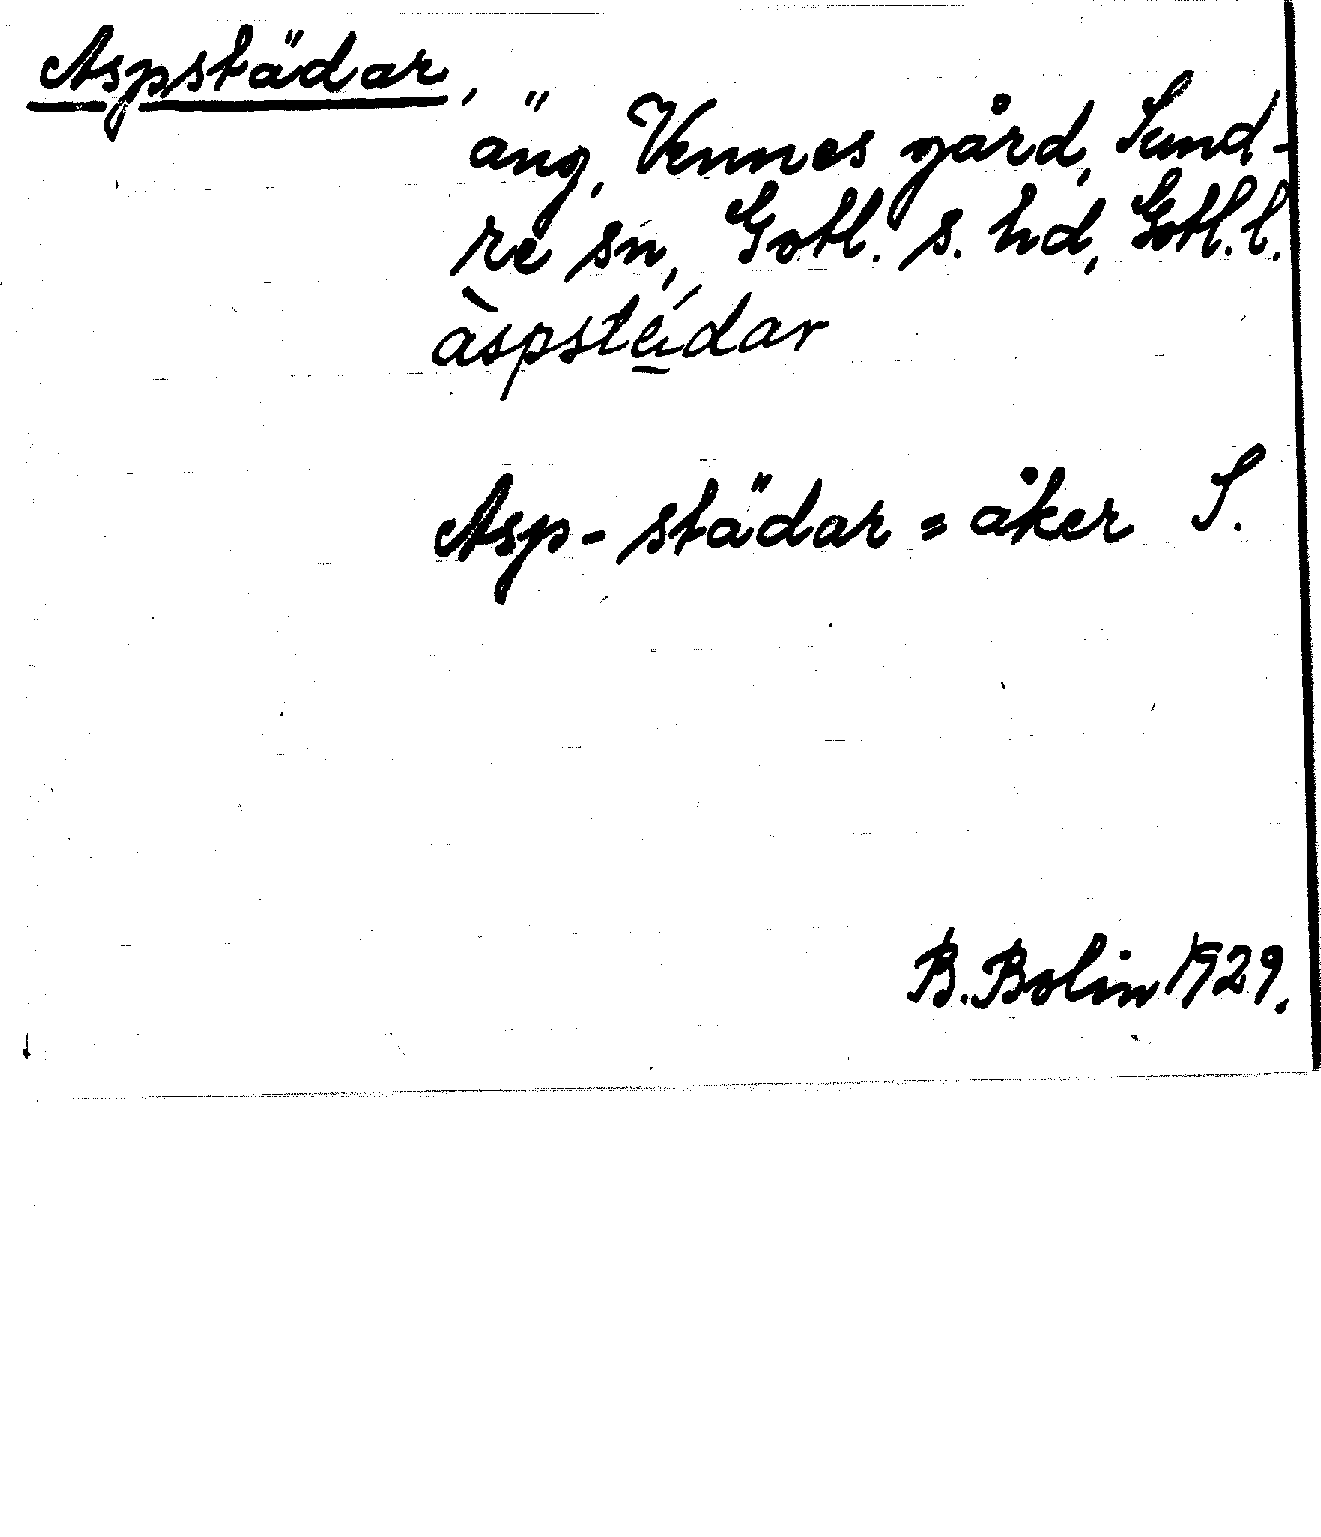 Aspstädar,
äng, Vennes gård, Sund-
re sn, Gotl. s. hd, Gotl. l.
àspstä́dar
Asp-städar = åker S.
B. Bolin 1929.